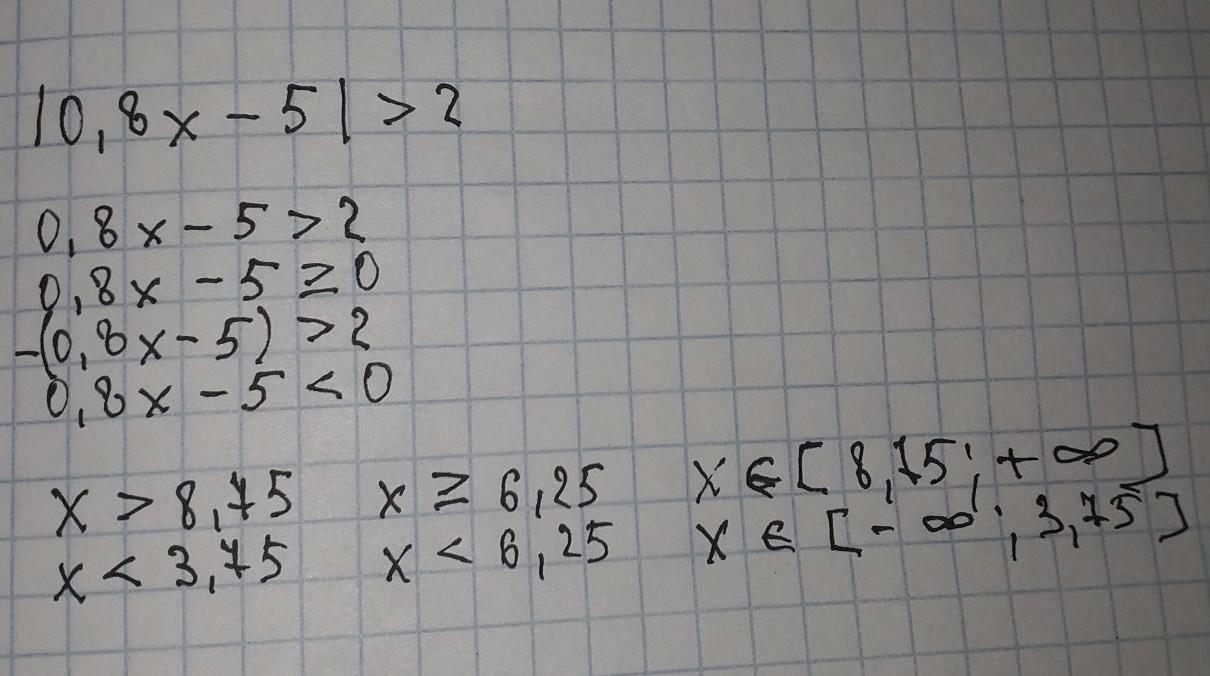 |0,8x - 5| > 2
0,8x - 5 > 2
0,8x - 5 ≥ 0
-(0,8x - 5) > 2
0,8x - 5 < 0
x > 8,75 x ≥ 6,25 x ∈ [8,75; + ∞]
x < 3,75 x < 6,25 x ∈ [- ∞; 3,75]